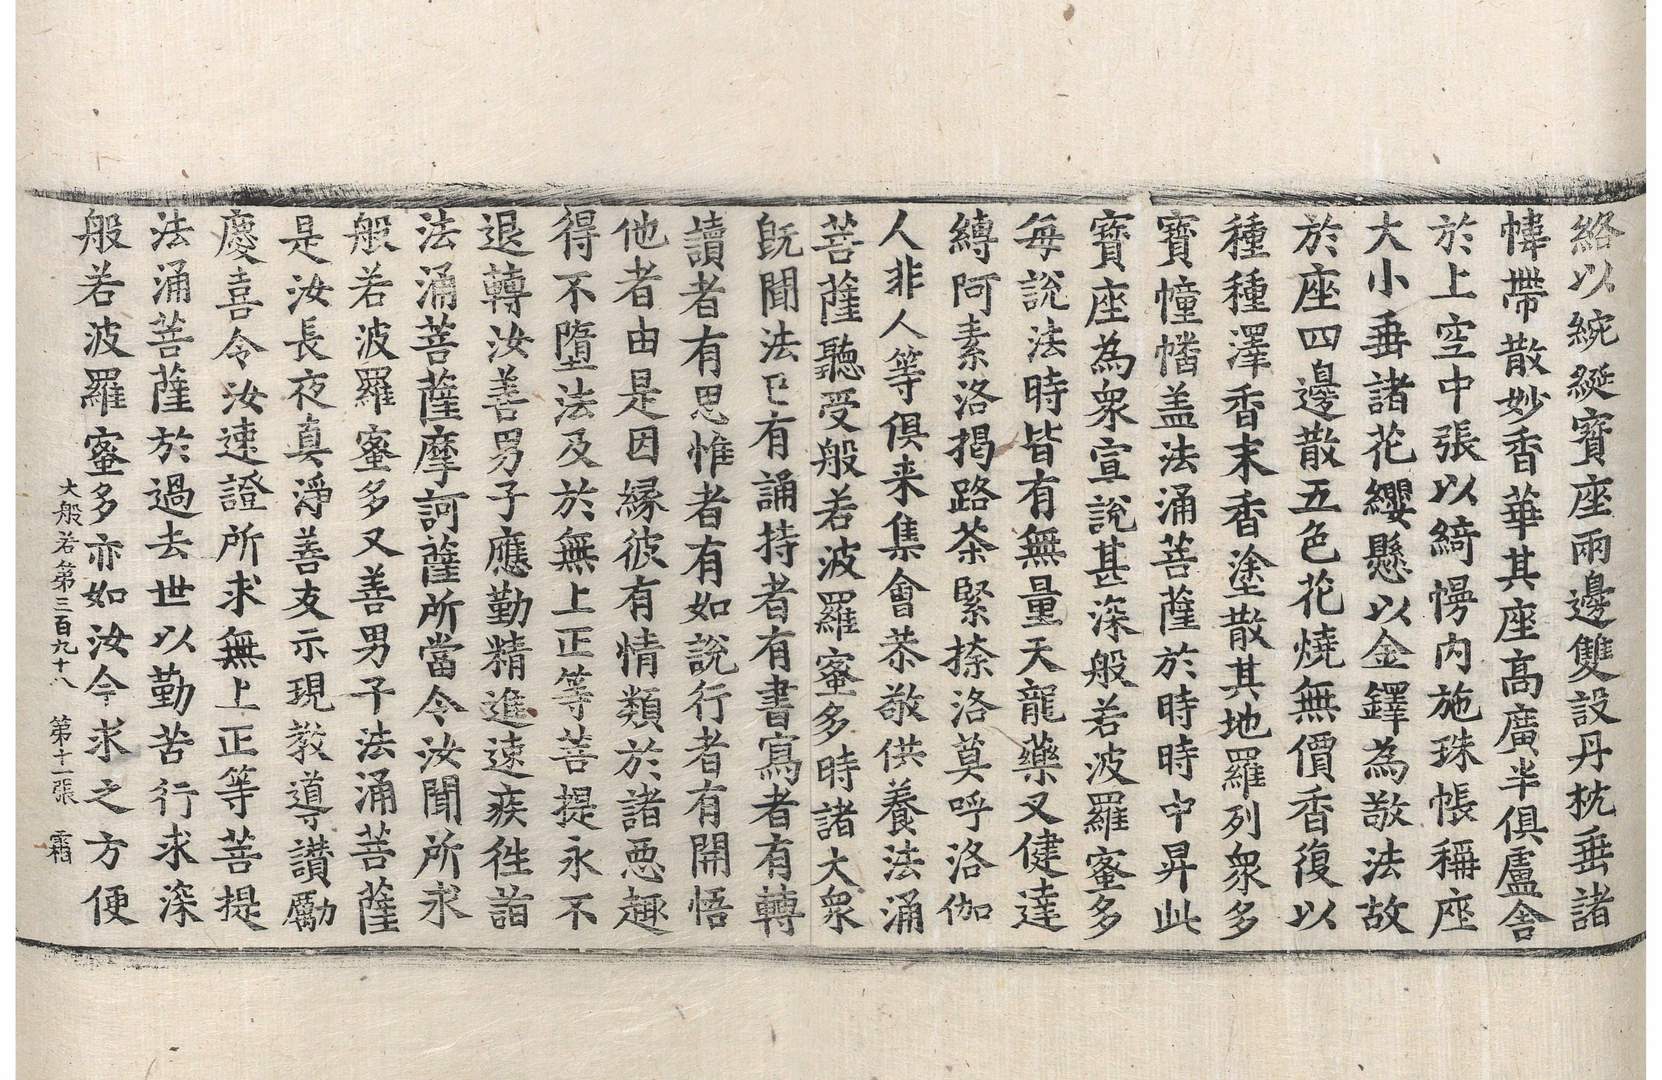 絡以綩綖寶座兩邊雙設丹枕垂諸
幃帶散妙香華其座高廣半俱盧舍
於上空中張以綺幔内施珠帳稱座
大小垂諸花纓懸以金鐸為敬法故
於座四邊散五色花燒無價香復以
種種澤香末香塗散其地羅列衆多
寶幢幡盖法涌菩薩於時時中昇此
寶座為衆宣說甚深般若波羅蜜多
每說法時皆有無量天龍藥叉健達
縛阿素洛揭路荼緊捺洛莫呼洛伽
人非人等俱来集會恭敬供養法涌
菩薩聽受般若波羅蜜多時諸大衆
旣聞法已有誦持者有書寫者有轉
讀者有思惟者有如說行者有開悟
他者由是因緣彼有情類於諸惡趣
得不墮法及於無上正等菩提永不
退轉汝善男子應勤精進速疾徃詣
法涌菩薩摩訶薩所當令汝聞所求
般若波羅蜜多又善男子法涌菩薩
是汝長夜真淨善友示現教導讃勵
慶喜令汝速證所求無上正等菩提
法涌菩薩於過去世以勤苦行求深
般若波羅蜜多亦如汝今求之方便
大般若第三百九十八 第十一張 霜